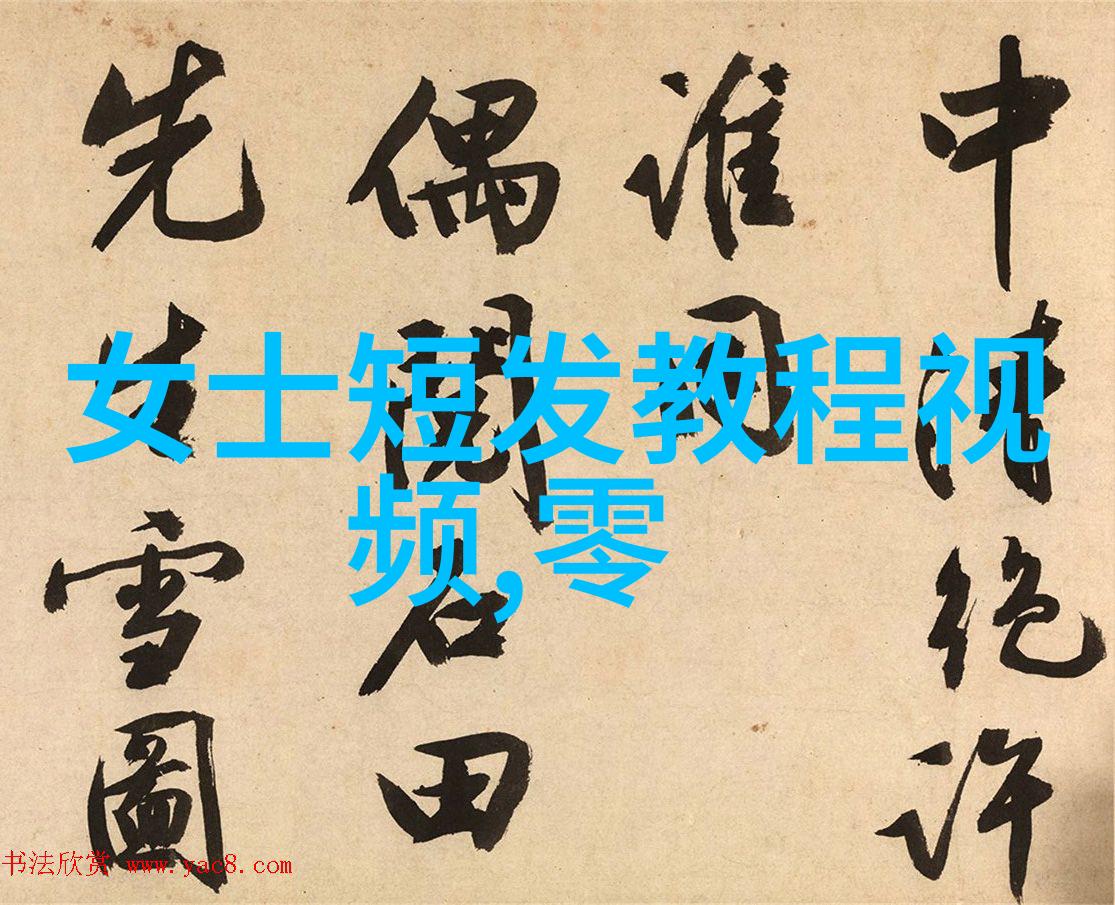 中清絶許
誰同
偶閱石田
先生雪圖
女士短发教程视
频,零
书法欣赏 www.yac8.com